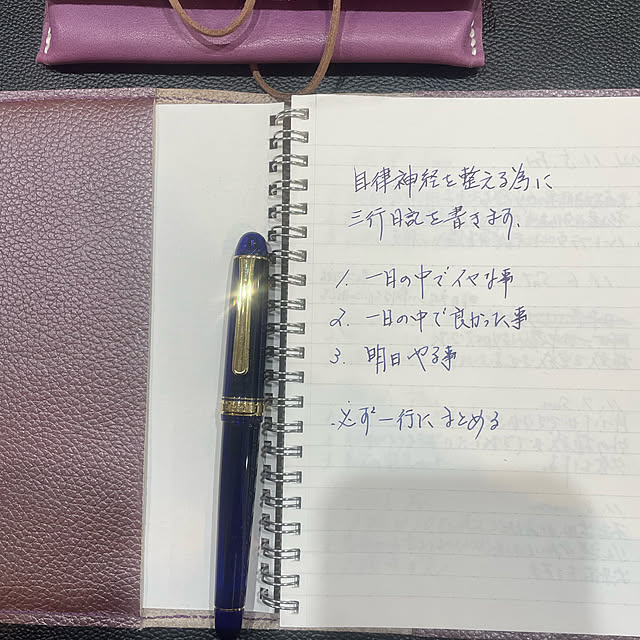 自律神経を整える為に
三行日記を書きます.
1. 一日の中でイヤな事
2. 一日の中で良かった事
3. 明日やる事
・必ず一行にまとめる